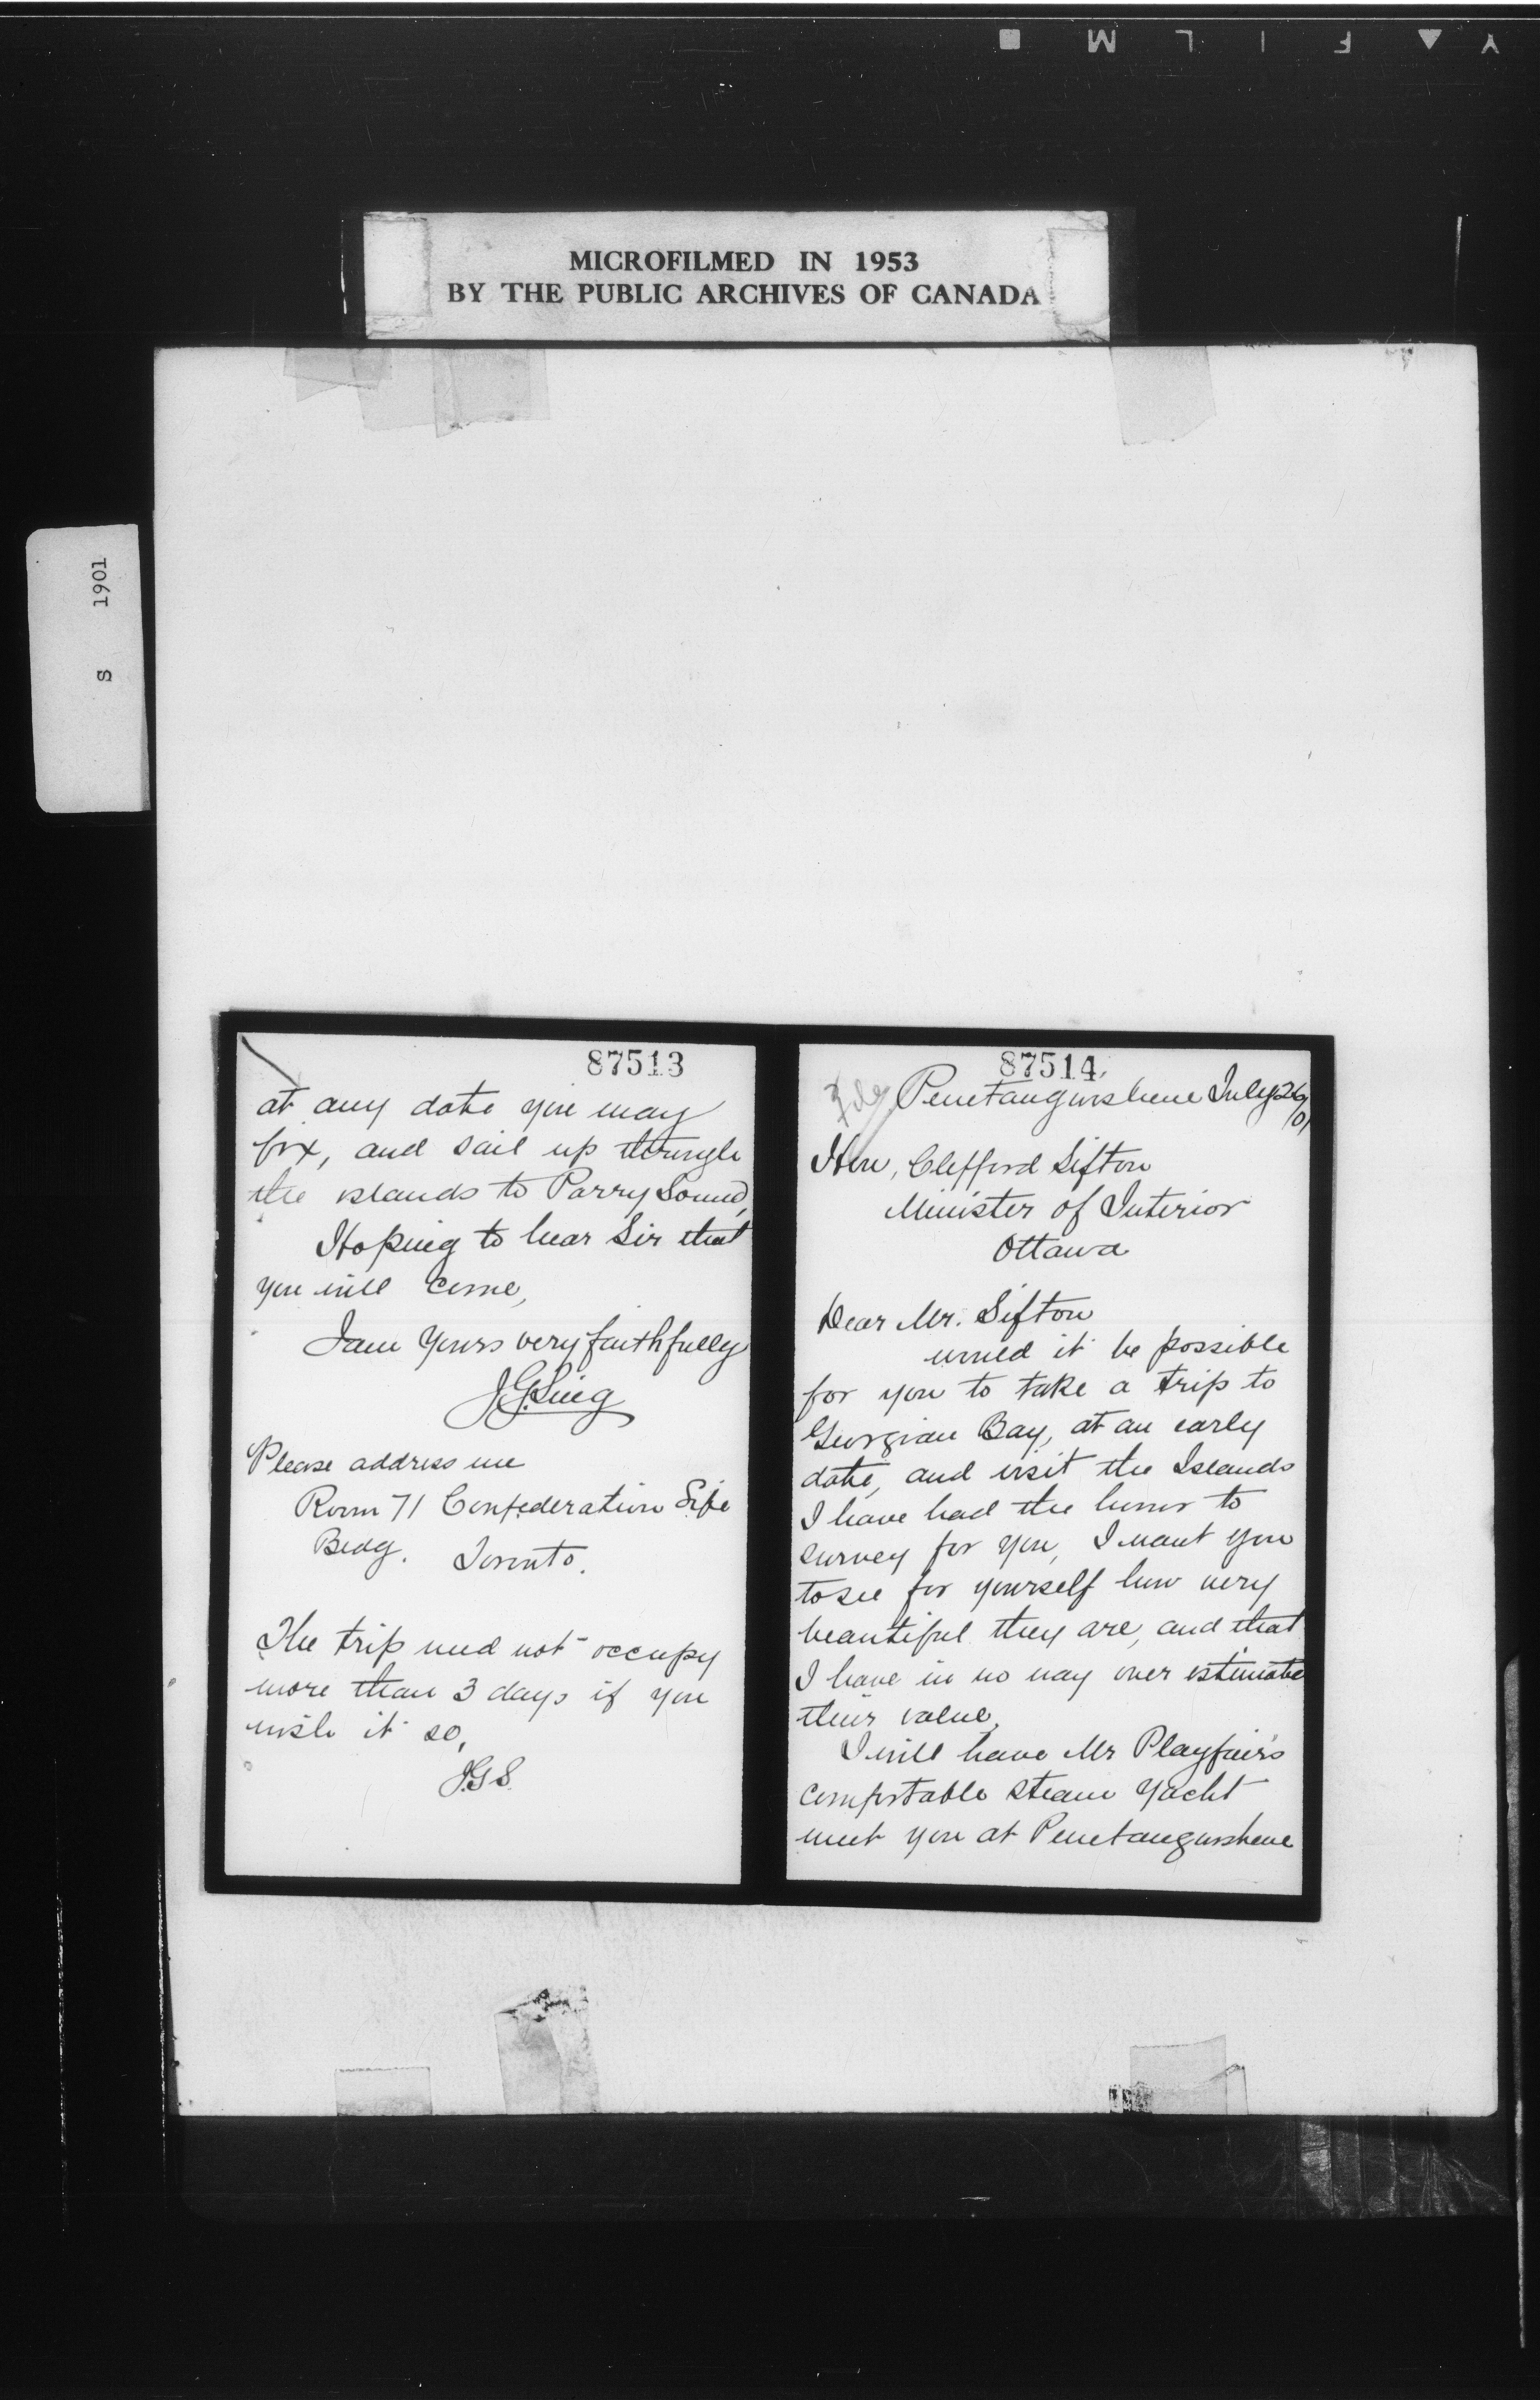 MICROFILMED IN 1953
BY THE PUBLIC ARCHIVES OF CANADA
S 1901
87513
at any date you may
fix, and sail up through
the islands to Parry Sound,
Hoping to hear Sir that
you will come,
I am Yours very faithfully
J.G. Sing
Please address me
Room 71 Confederation Life
Bldg. Toronto.
The trip need not occupy
more than 3 days if you
wish it so,
J.G.S.
87514
File
Penetanguishene July 26/01
Hon, Clifford Sifton
Minister of Interior
Ottawa
Dear Mr. Sifton
would it be possible
for you to take a trip to
Georgian Bay, at an early
date, and visit the Islands
I have had the honor to
survey for you, I want you
to see for yourself how very
beautiful they are, and that
I have in no way over estimated
their value.
I will have Mr Playfair's
comfortable steam Yacht
meet you at Penetanguishene